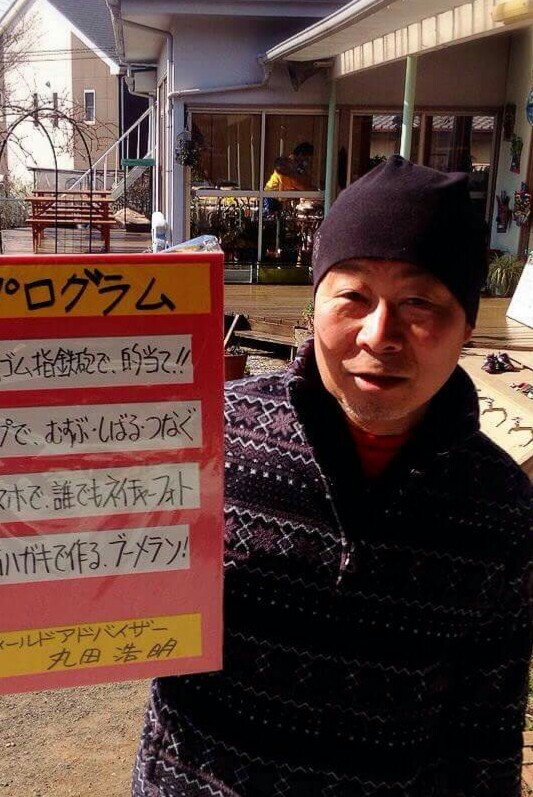 プログラム
ゴム指鉄砲で、的当て!!
プで、むすぶ・しばる・つなぐ
マホで、誰でもネイチャーフォト
ハガキで作る、ブーメラン!
ールドアドバイザー
丸田 浩明